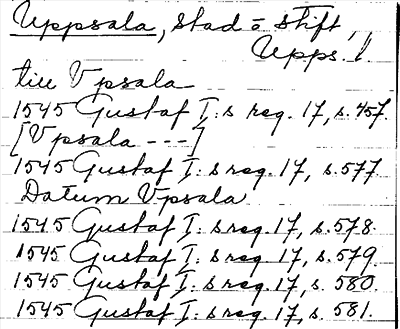 Uppsala, stad o stift,
Upps. l.
till Vpsala
1545 Gustaf I:s reg. 17, s. 457.
[Vpsala ---]
1545 Gustaf I:s reg. 17, s. 577.
Datum Vpsala
1545 Gustaf I:s reg. 17, s. 578.
1545 Gustaf I:s reg. 17, s. 579.
1545 Gustaf I:s reg. 17, s. 580.
1545 Gustaf I:s reg. 17, s. 581.